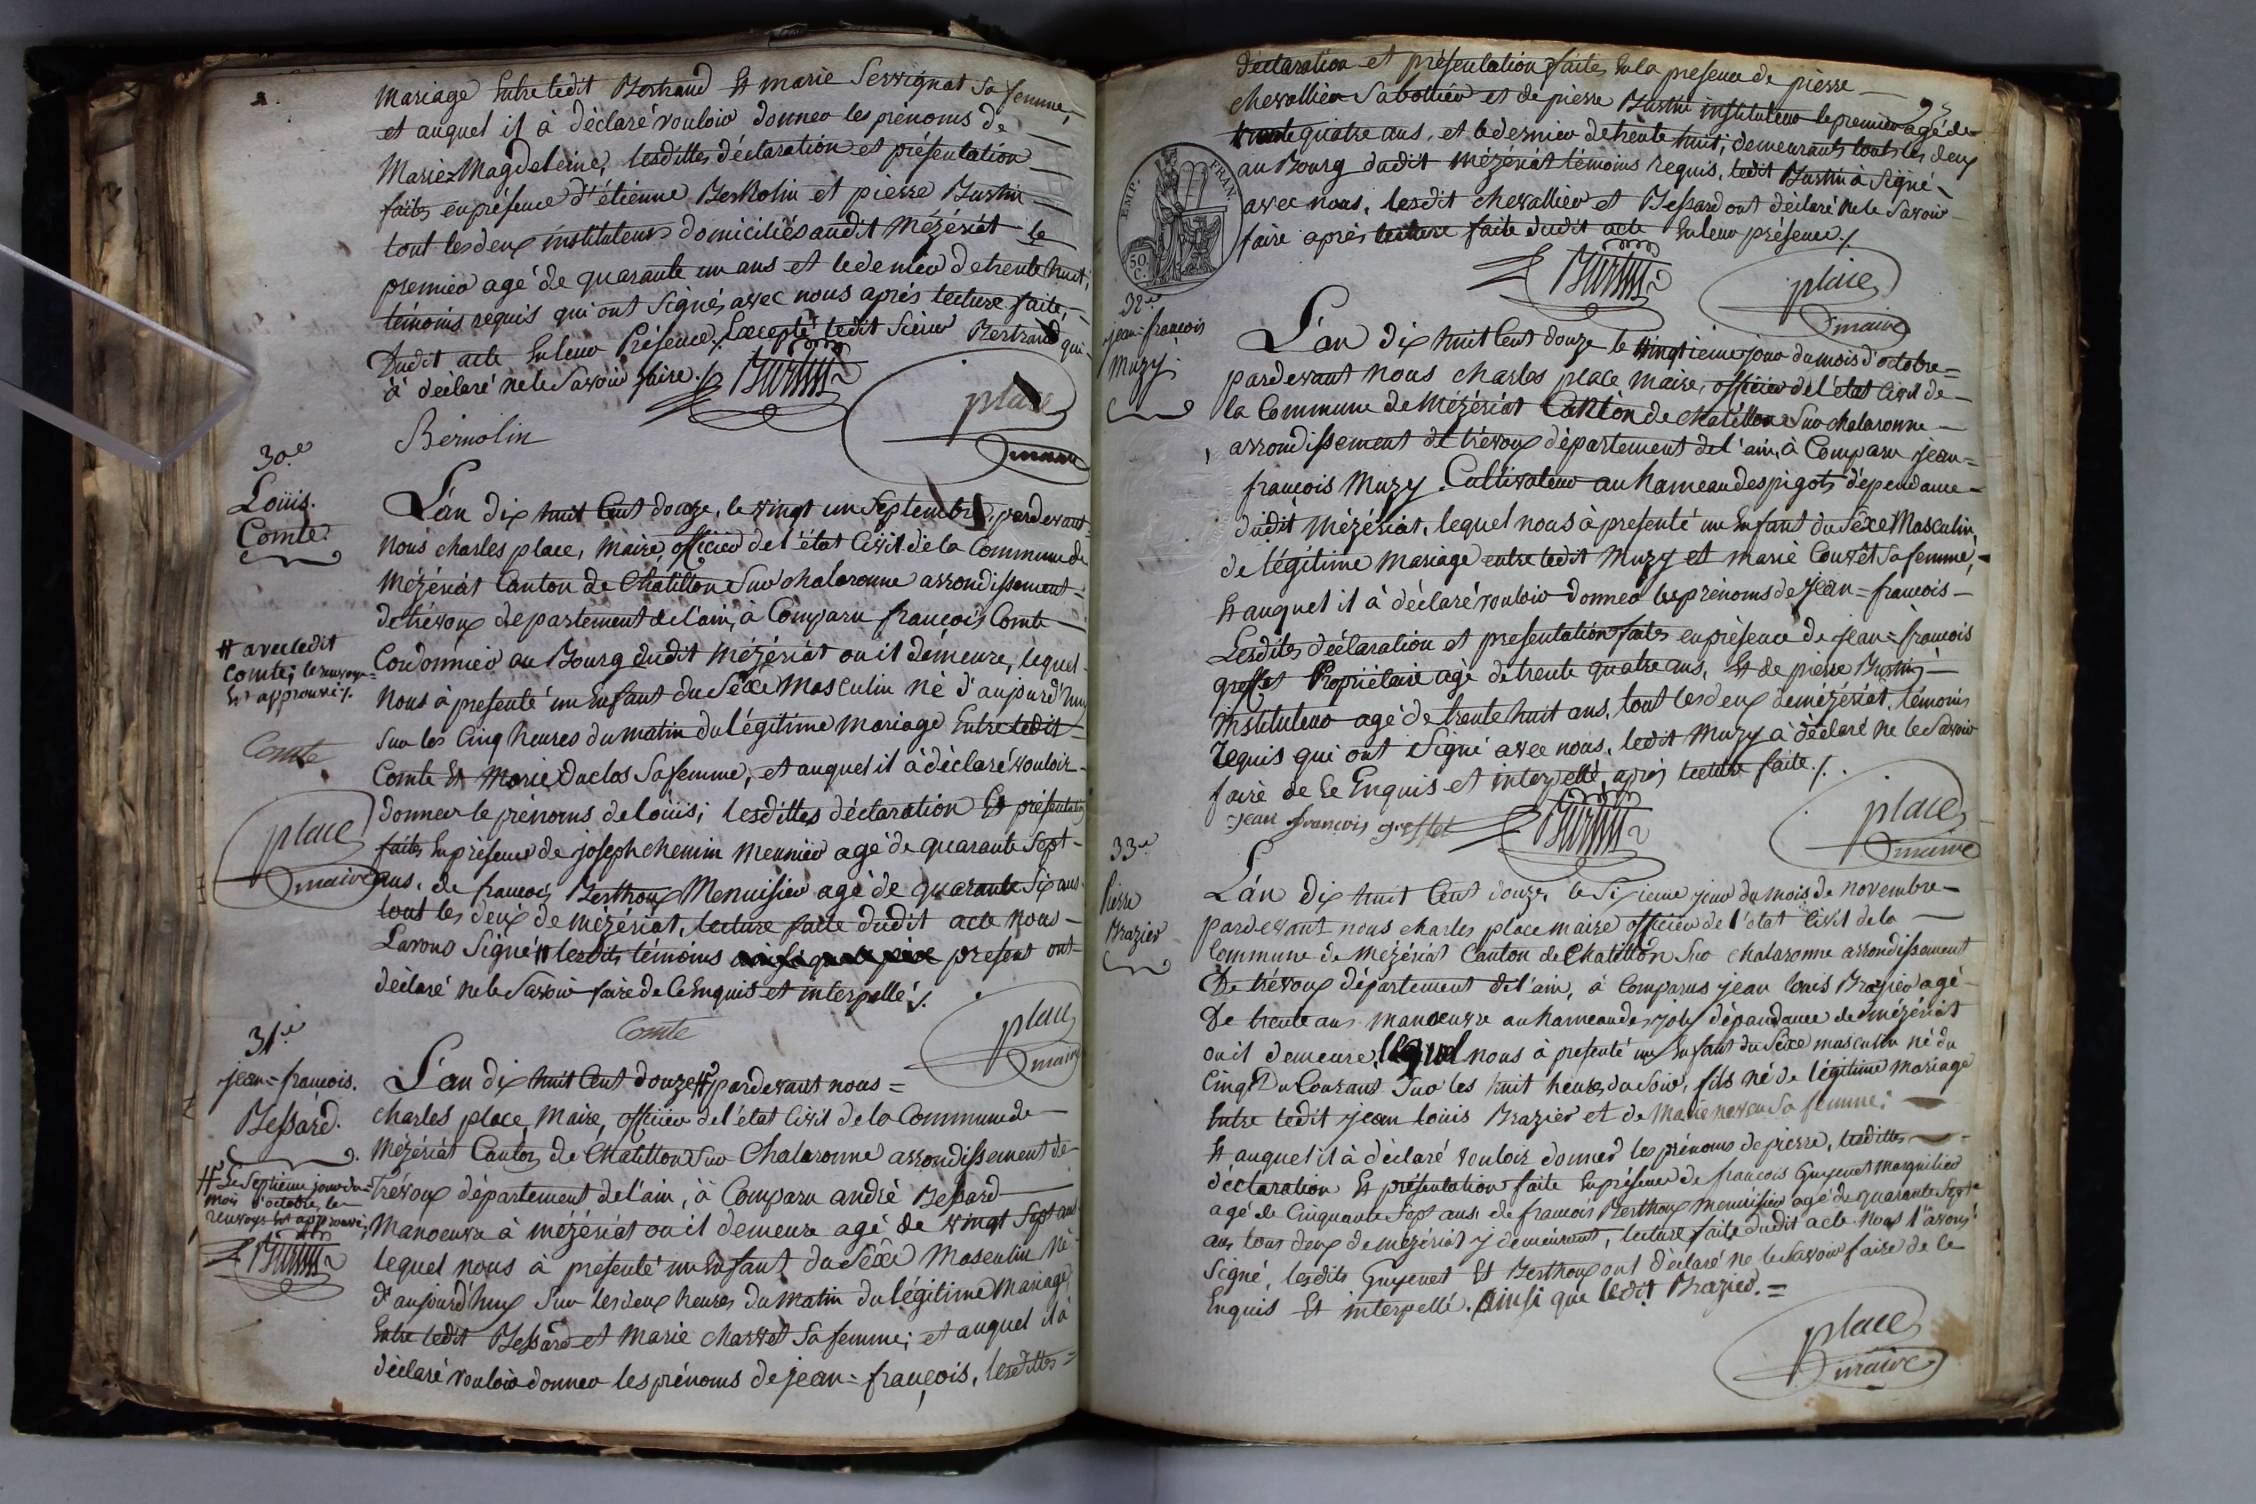 mariage Entre ledit Bertrand Et marie Servignat sa femme,
et auquel il à déclaré vouloir donner les prénoms de
Marie=Magdeleine, lesdittes déclaration et présentation
faites en présence d'étienne Bernolin et pierre Burtin
tout les deux instituteurs domiciliés audit Mézériat le
premier agé de quarante un ans et le dernier de trente huit,
témoins requis qui ont signés avec nous après lecture faite,
Dudit acte En leur Présence, Excepté ledit Bertrand qui
à déclaré ne le savoir faire ./.
Burtin
place
maire
Bernolin
30.e
Louis.
Comte
L'an dix huit Cent douze, le vingt un septembre, pardevant
Nous charles place, Maire, officier de l'état Civil de la Commune de
Mézériat Canton de Chatillon Sur chalaronne arrondissement
de trévoux département de l'ain, à Comparu françois Comte
Cordonnier au Bourg dudit Mézériat ou il démeure, lequel
Nous à présenté un Enfant du Séxe Masculin né d'aujourd'huy
sur les Cinq heures du matin du légitime mariage Entre ledit
Comte Et Marie Duclos sa femme, et auquel il à déclaré vouloir
donner le prénoms de louis; lesdittes déclaration Et présentation
faites En présence de joseph chemin Meunier agé de quarante Sept
ans, de françois Berthoux Menuisier agé de quarante Six ans
tout les deux de mézériat, lecture faite dudit acte Nous
Lavons Signé # lesdits témoins present ont
déclaré ne le Savoir faire de Ce Enquis et interpellé ./.
# avec ledit
Comte; le renvoye
Est approuvé ./.
Comte
place
maire
Comte
place
maire
31.e
jean=françois.
Bessard.
L'an dix huit Cent douze # pardevant nous =
Charles place, Maire, officier de l'état Civil de la Commune de
Mézériat Canton de Chatillon Sur Chalaronne arrondissement de
Trévoux département de l'ain, à Comparu andré Bessard
Manoeuvre à mézériat ou il demeure agé de vingt Sept ans
lequel nous à présenté un Enfant du Séxe Masculin Né
d'aujourd'huy Sur les deux heures du matin du légitime Mariage
Entre ledit Bessard et Marie charvet sa femme; et auquel il à
déclaré vouloir donner les prénoms de jean=françois, lesdittes=
# Le Septieme jour du
mois d'octobre, le
renvoye Est approuvé;
Burtin
déclaration et présentation faites En la présence de pierre
chevallier Sabottier et de pierre Burtin instituteur le premier agé de
trente quatre ans, et le dernier de trente huit, demeurants tout les deux
au Bourg dudit Mézériat témoins requis, ledit Burtin a signé
avec nous, lesdit chevallier et Bessard ont déclaré ne le Savoir
faire après lecture faite dudit acte En leur présence ./.
EMP. FRAN.
50 C.
Burtin
place
maire
32.e
jean=françois
Muzy
L'an dix huit Cent douze le vingtieme jour du mois d'octobre=
pardevant Nous charles place Maire, officier de l'état Civil de
la Commune de Mézériat Canton de chatillon Sur chalaronne
arrondissement de trévoux département de l'ain, à Comparu jean=
françois Muzy. Cultivateur au hameau des pigots dépendance
dudit Mézériat, lequel nous à présenté un Enfant du Séxe Masculin,
de légitime Mariage entre ledit Muzy et marie Couvet sa femme,
Et auquel il à déclaré vouloir donner les prénoms de jean=françois
Lesdites déclaration et présentation faites en présence de jean=françois
greffet Propriétaire agé de trente quatre ans, Et de pierre Burtin,
instituteur agé de trente huit ans, tout les deux de mézériat, témoins
requis qui ont signé avec nous, ledit Muzy à déclaré ne le Savoir
faire de Ce Enquis et interpellé, après lecture faite ./.
jean françois greffet
Burtin
place
maire
33.e
Pierre
Brazier
L'an dix huit Cent douze, le Sixieme jour du mois de novembre
pardevant nous charles place maire officier de l'état Civil de la
Commune de Mézériat Canton de Chatillon Sur chalaronne arrondissement
De trévoux département de l'ain, à Comparus jean louis Brazier agé
De trente ans manoeuvre au hameau des joly dépandance de mézériat
ou il demeure, lequel nous à présenté un Enfant du Séxe masculin né du
Cinq Du Courant Sur les huit heures du Soir, fils né de légitime mariage
Entre ledit jean louis Brazier et de Marie neveu sa femme;
Et auquel il à déclaré vouloir donner les prénoms de pierre, lesdittes
déclaration Et présentation faite En présence de françois Guyenet Marguilier
agé de Cinquante Sept ans, de françois Berthoux Menuisier agé de quarante Sept
ans tous deux de mézériat y demeurent, lecture faite dudit acte Nous l'avons
Signé, lesdits Guyenet Et Berthoux ont déclaré ne le Savoir faire de Ce
Enquis Et interpellé. Ainsi que ledit Brazier. =
place
maire